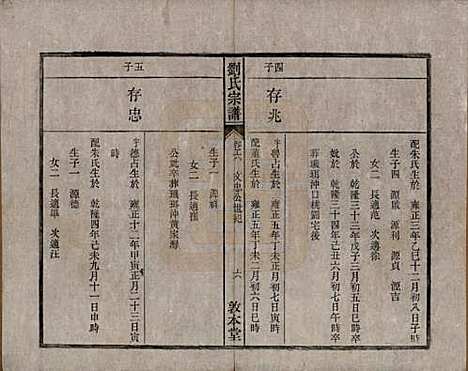 配朱氏生於 雍正三年乙巳十二月初八日子時
生子四 源成 源利 源貞 源吉
女二 長適范 次適徐
公於 乾隆三十三年戊子二月初五日卯時卒
妣於 乾隆三十四年己丑六月初七日午時卒
葬瑯琊沖口桃園宅後
四子
存兆
字譽占生於 雍正五年丁未正月初七日寅時
配董氏生於 雍正五年丁未二月初六日巳時
劉氏宗譜
卷之八 文忠公世紀
六
敦本堂
生子一 源禎
女二 長適張
公氏卒葬瑯琊沖黃家灣
五子
存忠
字德占生於 雍正十二年甲寅正月二十三日寅
時
配朱氏生於 乾隆四年己未九月十一日申時
生子一 源德
女二 長適畢 次適汪